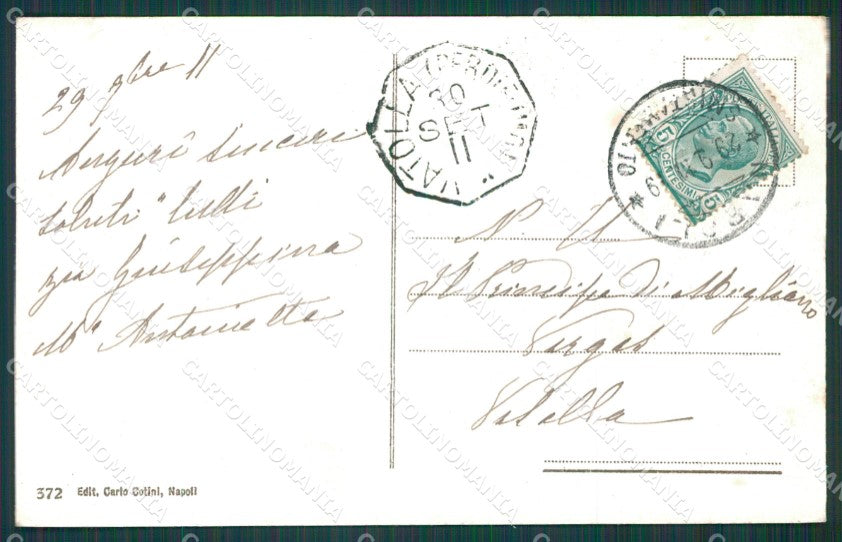 29 7bre 11
Auguri sinceri
saluti tutti
zia Giuseppina
Ma Antonietta
VATOLLA (PERDIFUMO)
30 SET 11
5 CENTESIMI 5
N. U.
Il Principe di Migliano
Vargas
Vatolla
372 Edit. Carlo Cotini, Napoli
CARTOLINOMANIA